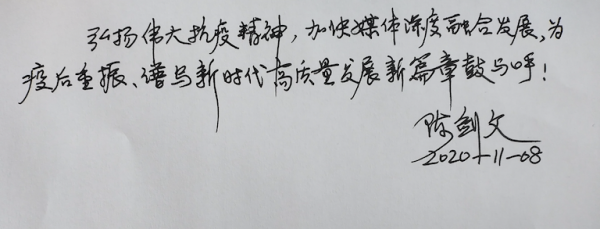 弘扬伟大抗疫精神，加快媒体深度融合发展、为
疫后重振、谱写新时代高质量发展新篇章鼓与呼！
陈剑文
2020-11-08